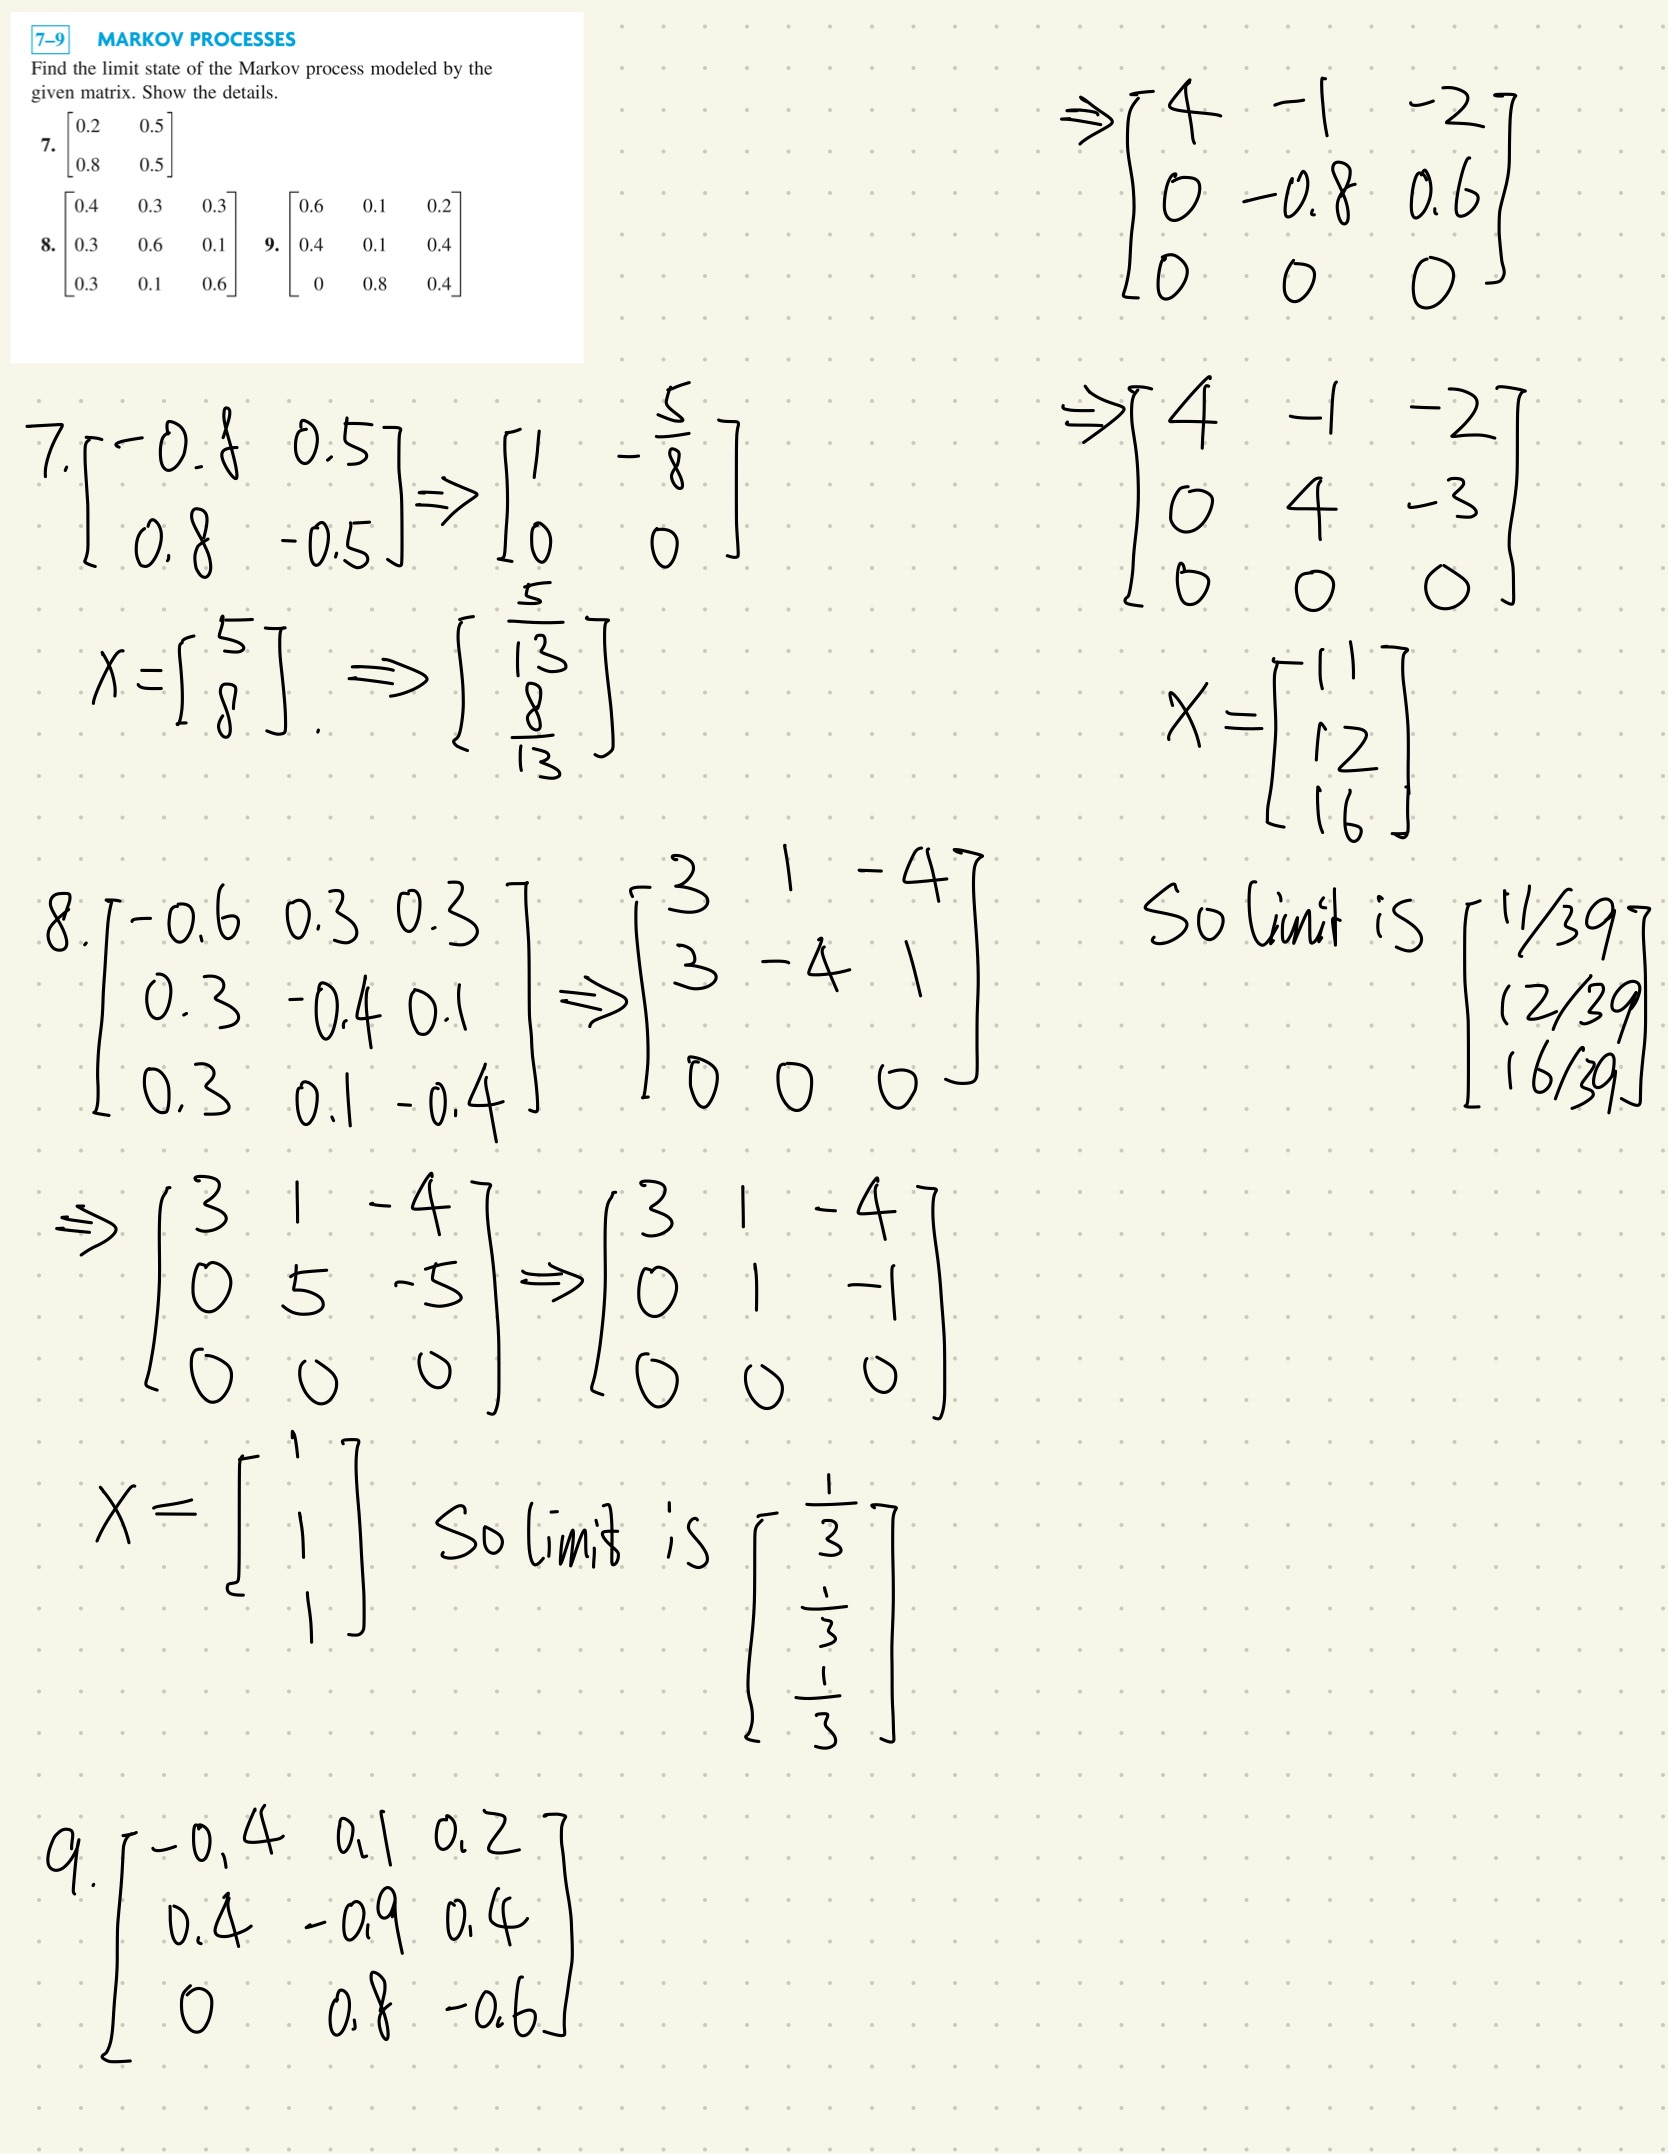 7–9 MARKOV PROCESSES
Find the limit state of the Markov process modeled by the
given matrix. Show the details.
7. [0.2 0.5
0.8 0.5]
8. [0.4 0.3 0.3
0.3 0.6 0.1
0.3 0.1 0.6]
9. [0.6 0.1 0.2
0.4 0.1 0.4
0 0.8 0.4]
7. [-0.8 0.5
0.8 -0.5] ⇒ [1 -5/8
0 0]
X = [5
8]. ⇒ [5/13
8/13]
8. [-0.6 0.3 0.3
0.3 -0.4 0.1
0.3 0.1 -0.4] ⇒ [3 1 -4
3 -4 1
0 0 0]
⇒ [3 1 -4
0 5 -5
0 0 0] ⇒ [3 1 -4
0 1 -1
0 0 0]
X = [1
1
1] So limit is [1/3
1/3
1/3]
9. [-0.4 0.1 0.2
0.4 -0.9 0.4
0 0.8 -0.6]
⇒ [4 -1 -2
0 -0.8 0.6
0 0 0]
⇒ [4 -1 -2
0 4 -3
0 0 0]
X = [11
12
16]
So limit is [11/39
12/39
16/39]